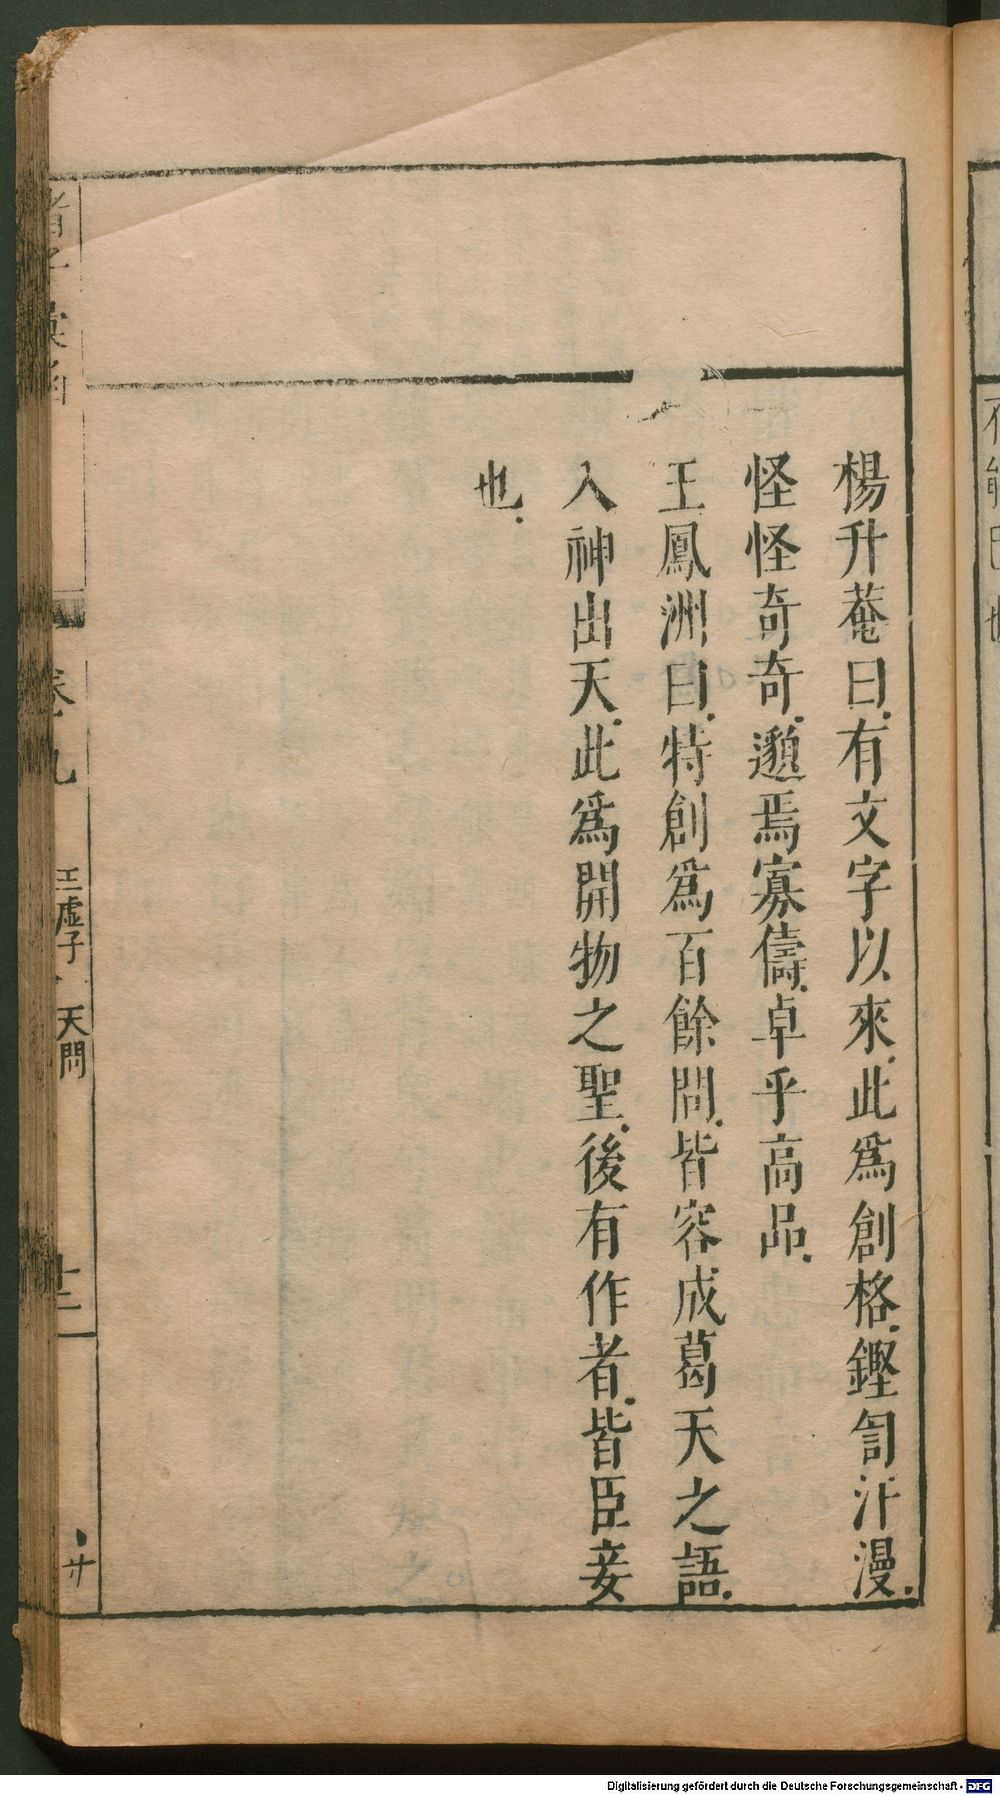 楊升菴曰.有文字以來.此爲創格.鏗訇汗漫.
怪怪奇奇.邈焉寡儔.卓乎高品.
王鳳洲曰.特創爲百餘問.皆容成葛天之語.
入神出天.此爲開物之聖.後有作者.皆臣妾
也.
諸子彙函
卷九
三虛子
天問
十二
Digitalisierung gefördert durch die Deutsche Forschungsgemeinschaft - DFG